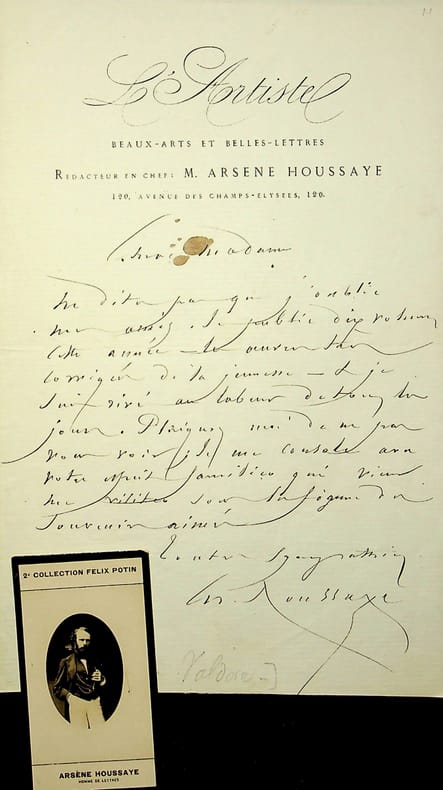 L'Artiste
BEAUX-ARTS ET BELLES-LETTRES
REDACTEUR EN CHEF: M. ARSENE HOUSSAYE
120, AVENUE DES CHAMPS-ELYSEES, 120.
Chère Madame
Ne dites pas que j'oublie
mes amis. Je publie dix volumes
cette année — les œuvres
corrigées de la jeunesse — et je
suis rivé au labeur de tous les
jours. Plaignez moi de ne pas
vous voir, je me console avec
votre esprit qui vient
me visiter sous la figure du
souvenir aimé
Toutes sympathies
Ar. Houssaye
2e COLLECTION FELIX POTIN
ARSÈNE HOUSSAYE
HOMME DE LETTRES